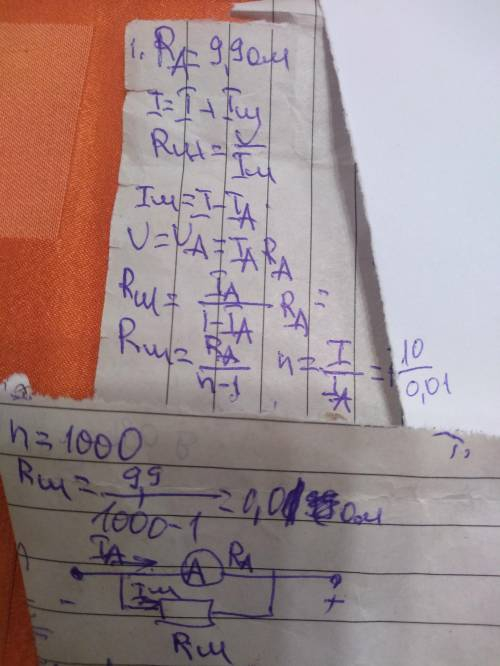 1. R_A = 9,9 Ом
I = I + Iш
Rш = U/Iш
Iш = I - I_A
U = U_A = I_A R_A
Rш = I_A/(I - I_A) R_A =
Rш = R_A/(n-1) n = I/I_A = 10/0,01
n = 1000
Rш = 9,9/(1000-1) = 0,01 Ом
I_A A R_A
Iш
- +
Rш